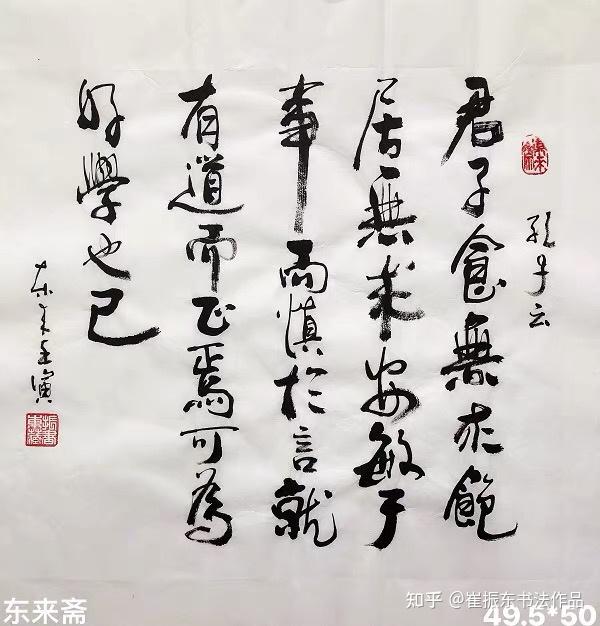 孔子云
君子食無求飽
居無求安敏于
事而慎於言就
有道而正焉可為
好學也已
东来壬寅
东来斋
知乎 @崔振东书法作品
49.5*50